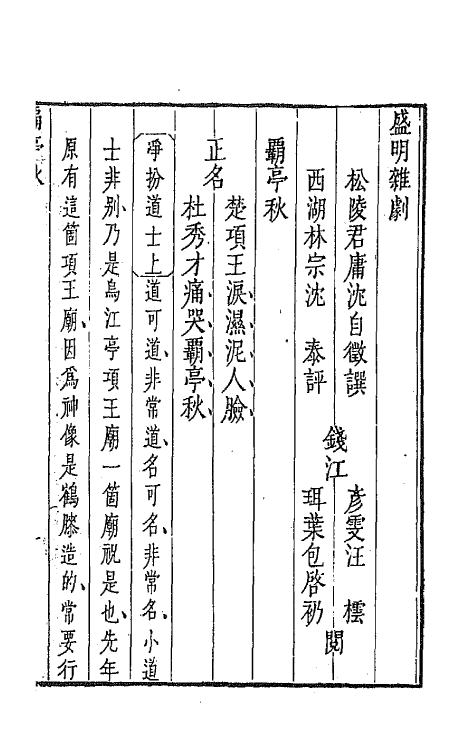 盛明雜劇
松陵君庸沈自徵譔
西湖林宗沈　泰評
錢江　彥雯汪　樗
珥葉包啓礽　閱
覇亭秋
正名
楚項王淚濕泥人臉
杜秀才痛哭覇亭秋
淨扮道士上道可道、非常道、名可名、非常名、小道
士非别、乃是烏江亭項王廟一箇廟祝是也、先年
原有這箇項王廟、因爲神像是鶴膝造的、常要行
覇亭秋